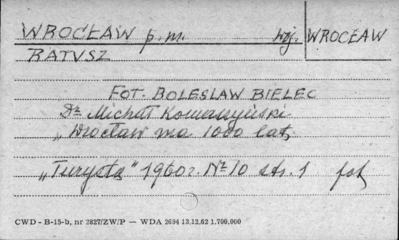 WROCŁAW p.m. woj. WROCŁAW
RATUSZ
FOT. BOLESŁAW BIELEC
Dr Michał Komaszyński
„Wrocław ma 1000 lat"
„Turysta" 1960 r. Nr 10 str. 1 fot
CWD - B-15-b, nr 2827/ZW/P — WDA 2694 13.12.62 1.700.000